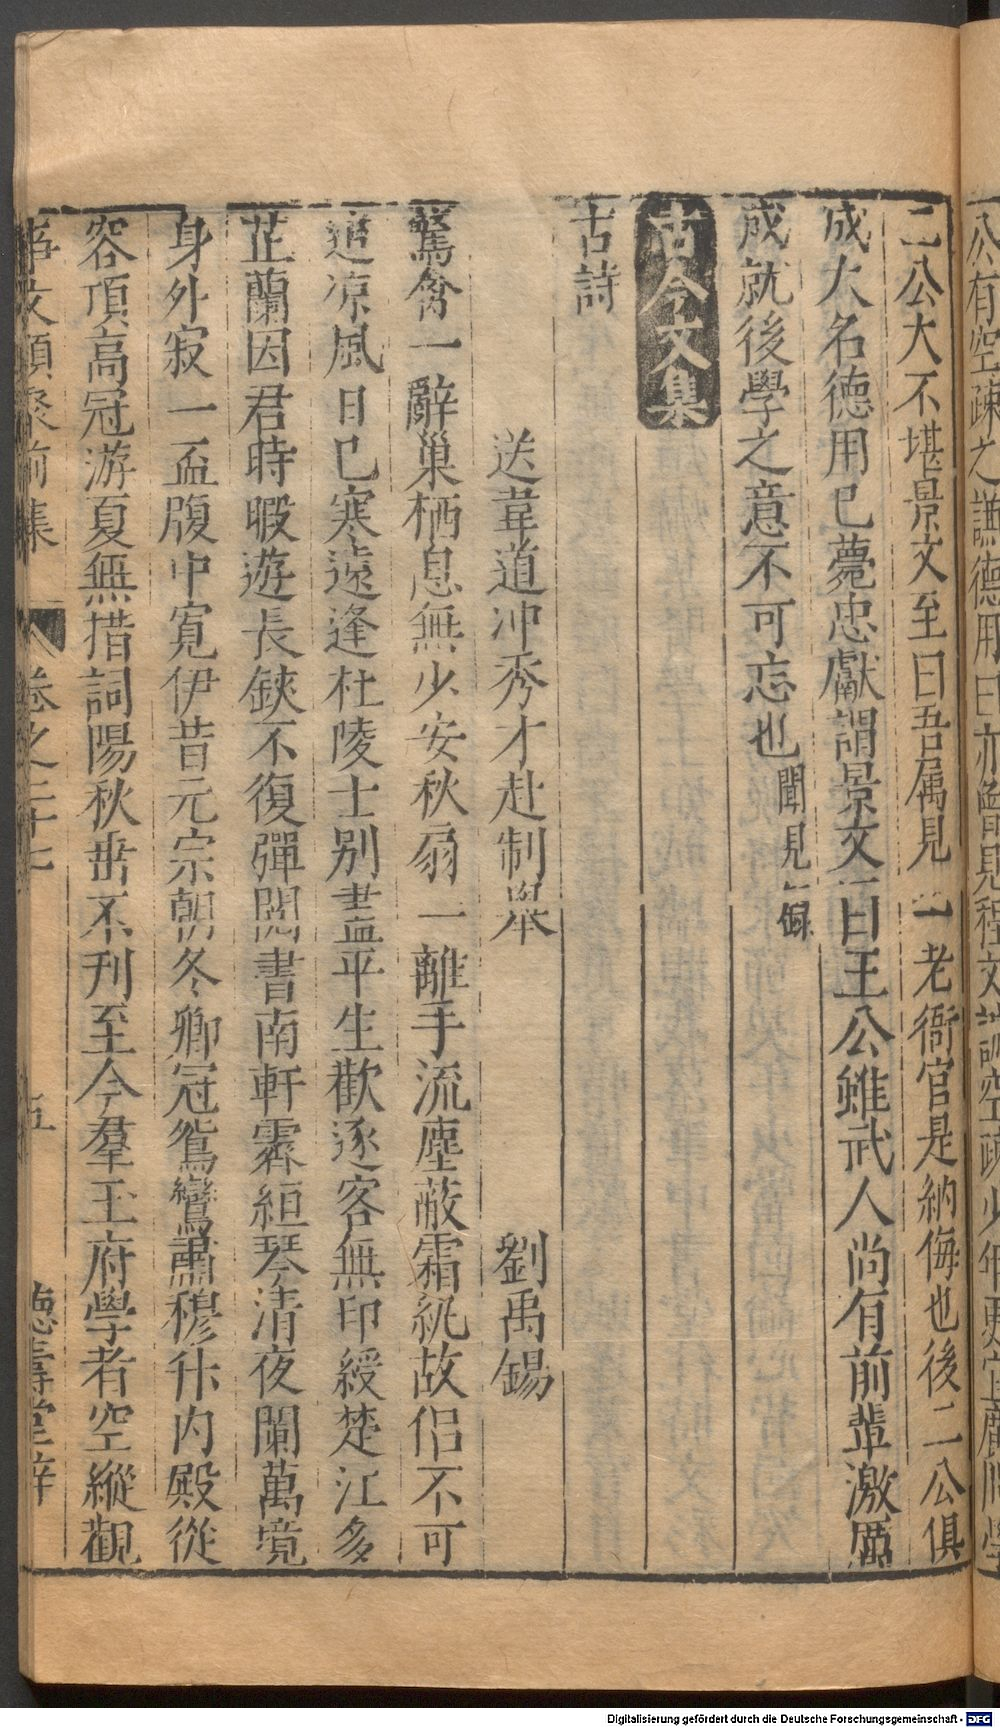 二公大不堪景文至曰吾属見一老衙官是納侮也後二公俱
成大名德用已薨忠獻謂景文曰王公雖武人尚有前輩激厲
成就後學之意不可忘也聞見録
古今文集
古詩
送韋道冲秀才赴制舉 劉禹錫
驚禽一辭巢栖息無少安秋扇一離手流塵蔽霜紈故侣不可
追凉風日已寒遠逢杜陵士别盡平生歡逐客無印綬楚江多
芷蘭因君時暇遊長鋏不復彈閱書南軒霽絙琴清夜闌萬境
身外寂一盃腹中寬伊昔元宗朝冬卿冠鴛鸞肅穆升内殿從
容頂高冠游夏無措詞陽秋垂不刊至今羣玉府學者空縱觀
事文類聚前集 卷之二十七 五 德壽堂梓
Digitalisierung gefördert durch die Deutsche Forschungsgemeinschaft - DFG